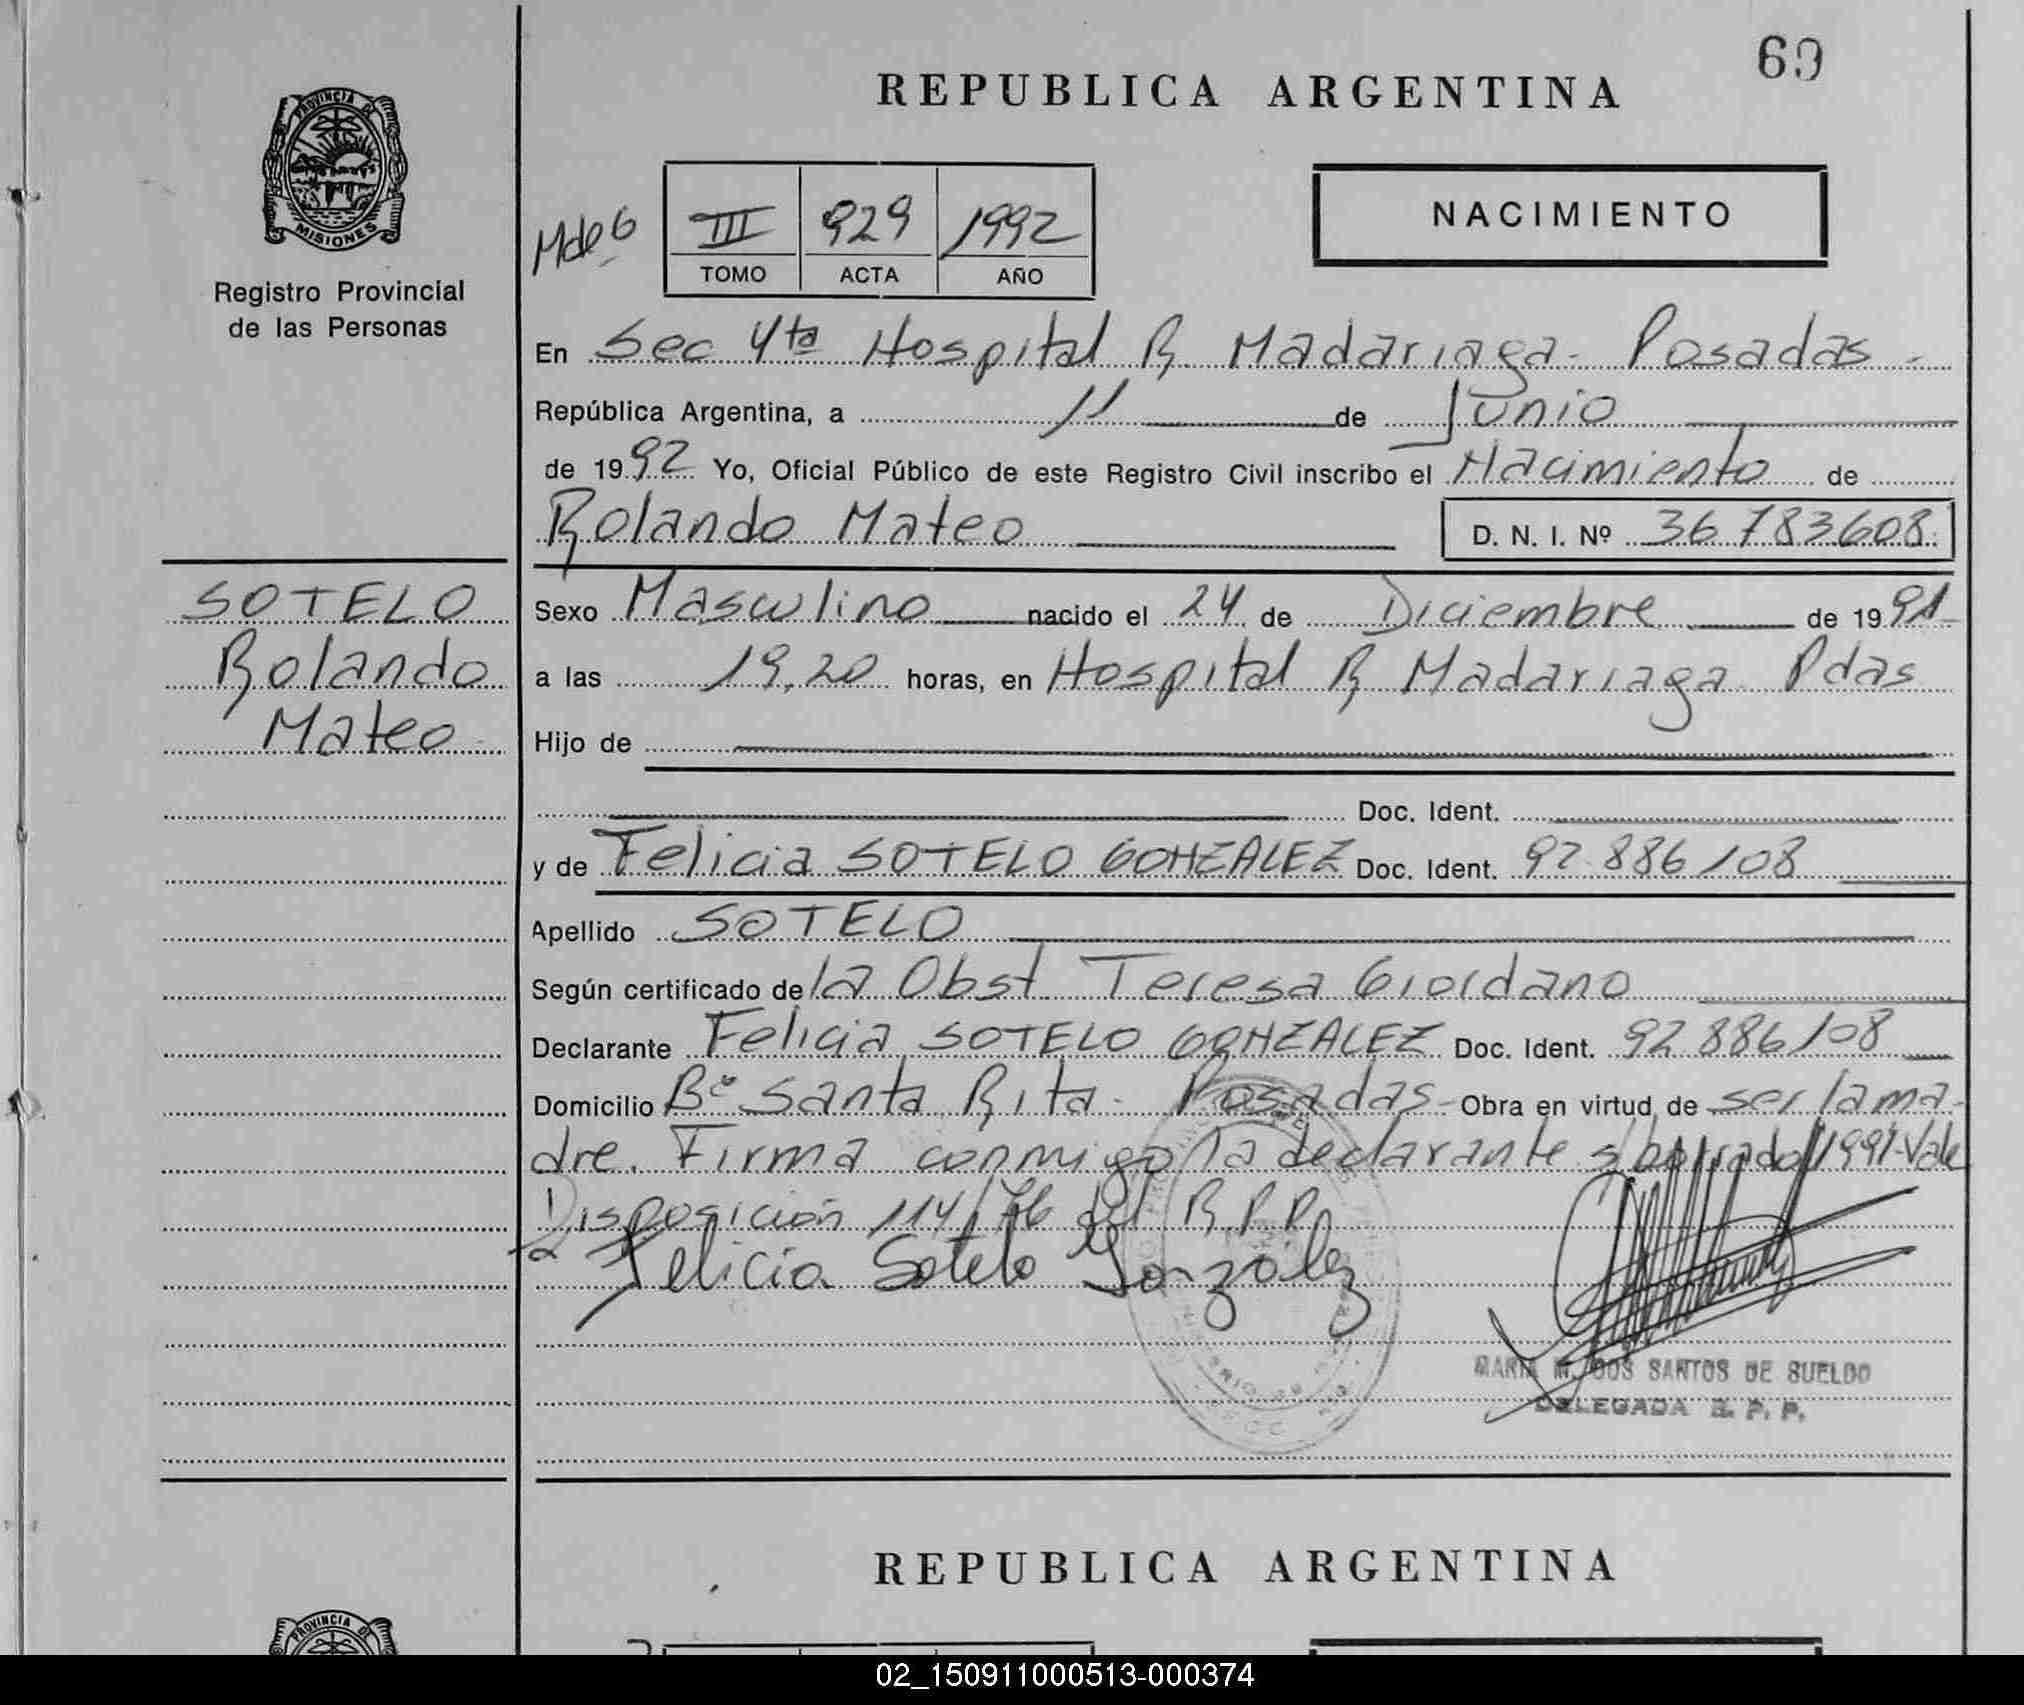 69
REPUBLICA ARGENTINA
PROVINCIA DE
MISIONES
Registro Provincial
de las Personas
III 929 1992
TOMO ACTA AÑO
NACIMIENTO
En Sec 4ta Hospital R. Madariaga - Posadas -
República Argentina, a 11 de Junio
de 1992 Yo, Oficial Público de este Registro Civil inscribo el Nacimiento de
Rolando Mateo D. N. I. Nº 36 783608
SOTELO
Rolando
Mateo
Sexo Masculino nacido el 24 de Diciembre de 1991
a las 19,20 horas, en Hospital R Madariaga Pdas
Hijo de
Doc. Ident.
y de Felicia SOTELO GONZALEZ Doc. Ident. 92.886108
Apellido SOTELO
Según certificado de la Obst. Teresa Giordano
Declarante Felicia SOTELO GONZALEZ Doc. Ident. 92 886108
Domicilio Bº Santa Rita - Posadas - Obra en virtud de ser la ma-
dre. Firma conmigo la declarante s/borrado/1991-Vale
Disposición 114/76 del R.P.P.
Felicia Sotelo González
MARIA M. DOS SANTOS DE SUELDO
DELEGADA R. P. P.
REPUBLICA ARGENTINA
PROVINCIA DE
02_150911000513-000374